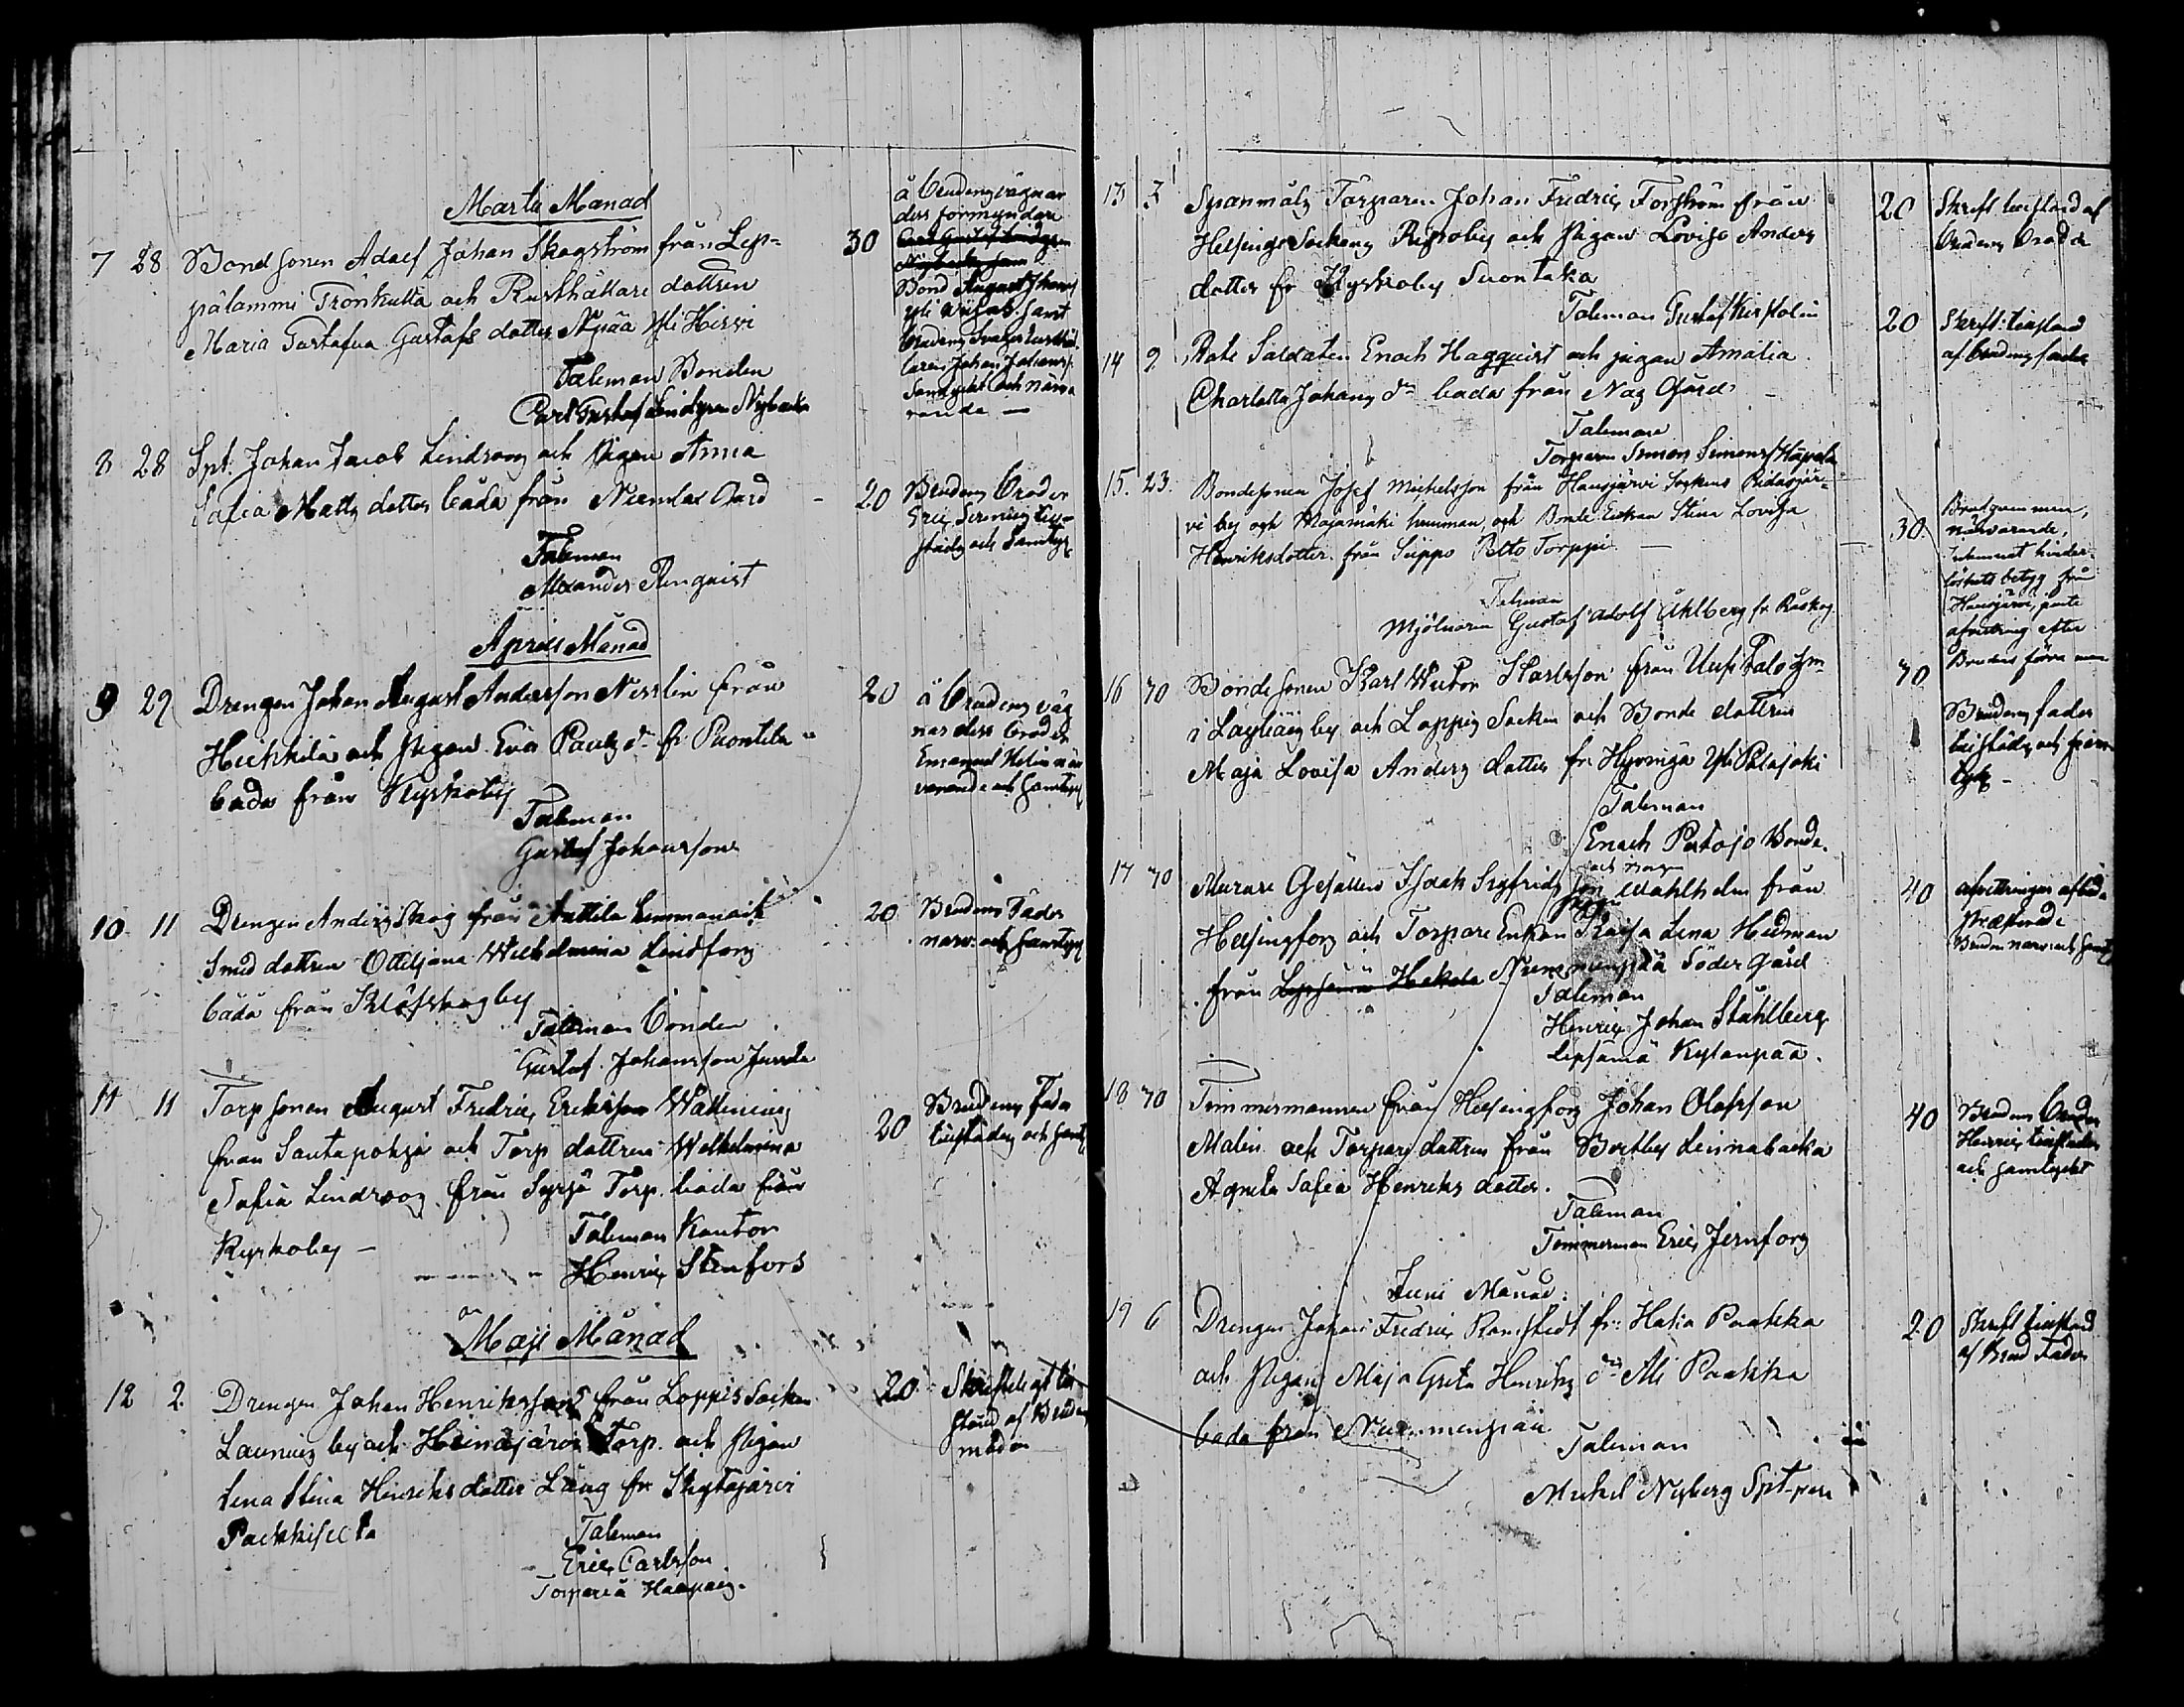 Martii Månad
7 28 Bondsonen Adolf Johan Skogström från Lep=
pälammi Trönkulla och Rusthållare dottren
Maria Gustafva Gustafs dotter Nopää Yli Hirvi
Taleman Bonden
Carl Gustaf Lindgren Nybacka
30
å Brudens vägnar
dess förmyndare
Carl Gustaf Lindgren
Bond August Johans
samt
Brudens
Johan Johans
Samtyckt och närva
rande —
8 28 Spt. Johan Jacob Lindroos och Pigan Anna
Safia Matts dotter båda från Gård
Taleman
Alexander Renquist
20
Brudens Broder
Eric
städs och Samtyck
Aprill Månad
9 29 Drengen Johan August Andersson Nisslin från
Heikkilä och Pigan Eva Pauls dr fr Puontila
båda från Kyrkoby
Taleman
Gustaf Johansson
20
å Brudens väg
nar dess broder
Emanuel Helin när
varande och samtyck
10 11 Drengen Anders Skog från Anttila hemman och
Smed dottren Ottiljana Wilhelmina Lindfors
båda från Klöfskog by
Taleman bonden
Gustaf Johansson Jussila
20
Brudens Fader
narv: och samtyck
11 11 Torpsonen August Fredric Eriksson Wallenius
från Santapohja och Torp dottren Wilhelmina
Sofia Lindroos från Syrjä Torp. båda från
Kyrkoby —
Taleman Kantor
Henric Stenfors
20
Brudens Fader
tillstädes och samt
Maji Månad
12 2. Drengen Johan Henriksson från Loppis Socken
Launois by och Heinäjärvi Torp. och Pigan
Lena Stina Henriksdotter Lång fr Skytajärvi
Pachkiselta
Taleman
Eric Carlsson
Torpare å Haapais.
20
Skrifteligt till
stånd af Brudens
moder
13 3 Spanmåls Torparen Johan Fredric Forsström från
Helsinge Sockens Ripuby och Pigan Lovisa Anders
dotter fr Kyrkoby Suontaka
Taleman Gustaf
20
Skrift. tillstånd af
Brudens Broder
14 9 Rote Soldaten Enoch Hagquist och pigan Amalia
Charlotta Johans dr båda från Nas Gård
Taleman
Torparen Simon Simons/Hapola
20
Skrift: tillstånd
af brudens fader
15. 23. Bondesonen Josef Michelsson från Hausjärvi Sockens Ridasjär=
vi by och Majamäki hemman, och Bonde Enkan Stina Lovisa
Henriksdotter från Seppo Pelto Torppi —
Taleman
Mjölnaren Gustaf Adolf Åhlberg fr Råskog
30.
Brudgummen,
närvarande,
inlemnat hinder=
löshets betyg från
Hausjärvi, jemte
afvittring efter
Brudens förra man
16 30 Bonde sonen Karl Victor Karlsson från Uusi Talo hm
i Layliäis by och Loppis Socken och Bonde dottren
Maja Lovisa Anders dotter fr. Hyvinge Yli Palojoki
Taleman
Enoch Palojo Bonde.
30
Brudens fader
tillstädes och sam=
tyck —
17 30 Murare Gesällen Isaak Sigfridsson Wahlholm från
Helsingfors och Torpare Enkan Kaisa Lena Hedman
från Lepsämä Hekola Nummenpää Söder Gård
Taleman
Henric Johan Ståhlberg
Lepsämä Kylänpää.
40
afvittringen afled.
Presterad
Bruden narv: och samt
18 30 Timmermannen från Helsingfors Johan Olofsson
Malin och Torpars dottren från Bortby Leinabacka
Agneta Safia Henriks dotter.
Taleman
Timmerman Eric Jernfors
40
Brudens Broder
Henric tillstädes
och samtyckt
Juni Månad.
19 6 Drengen Johan Fredric Ramstedt fr: Hatia Paakka
och Pigan Maja Greta Henriks dr Ali Paakka
båda från Nummenpää
Taleman
Mickel Nyberg Spt-pare
20
Skrift tillstånd
af Brud Fader